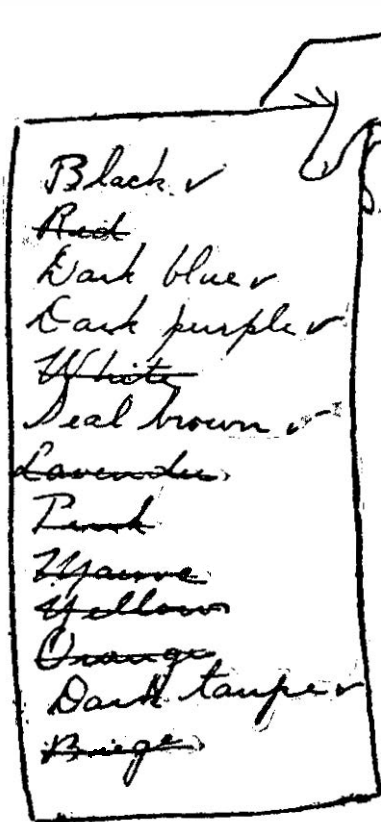 Black ✓
Red
Dark blue ✓
Dark purple ✓
White
Seal brown ✓
Lavender
Pink
Mauve
Yellow
Orange
Dark taupe ✓
Biege